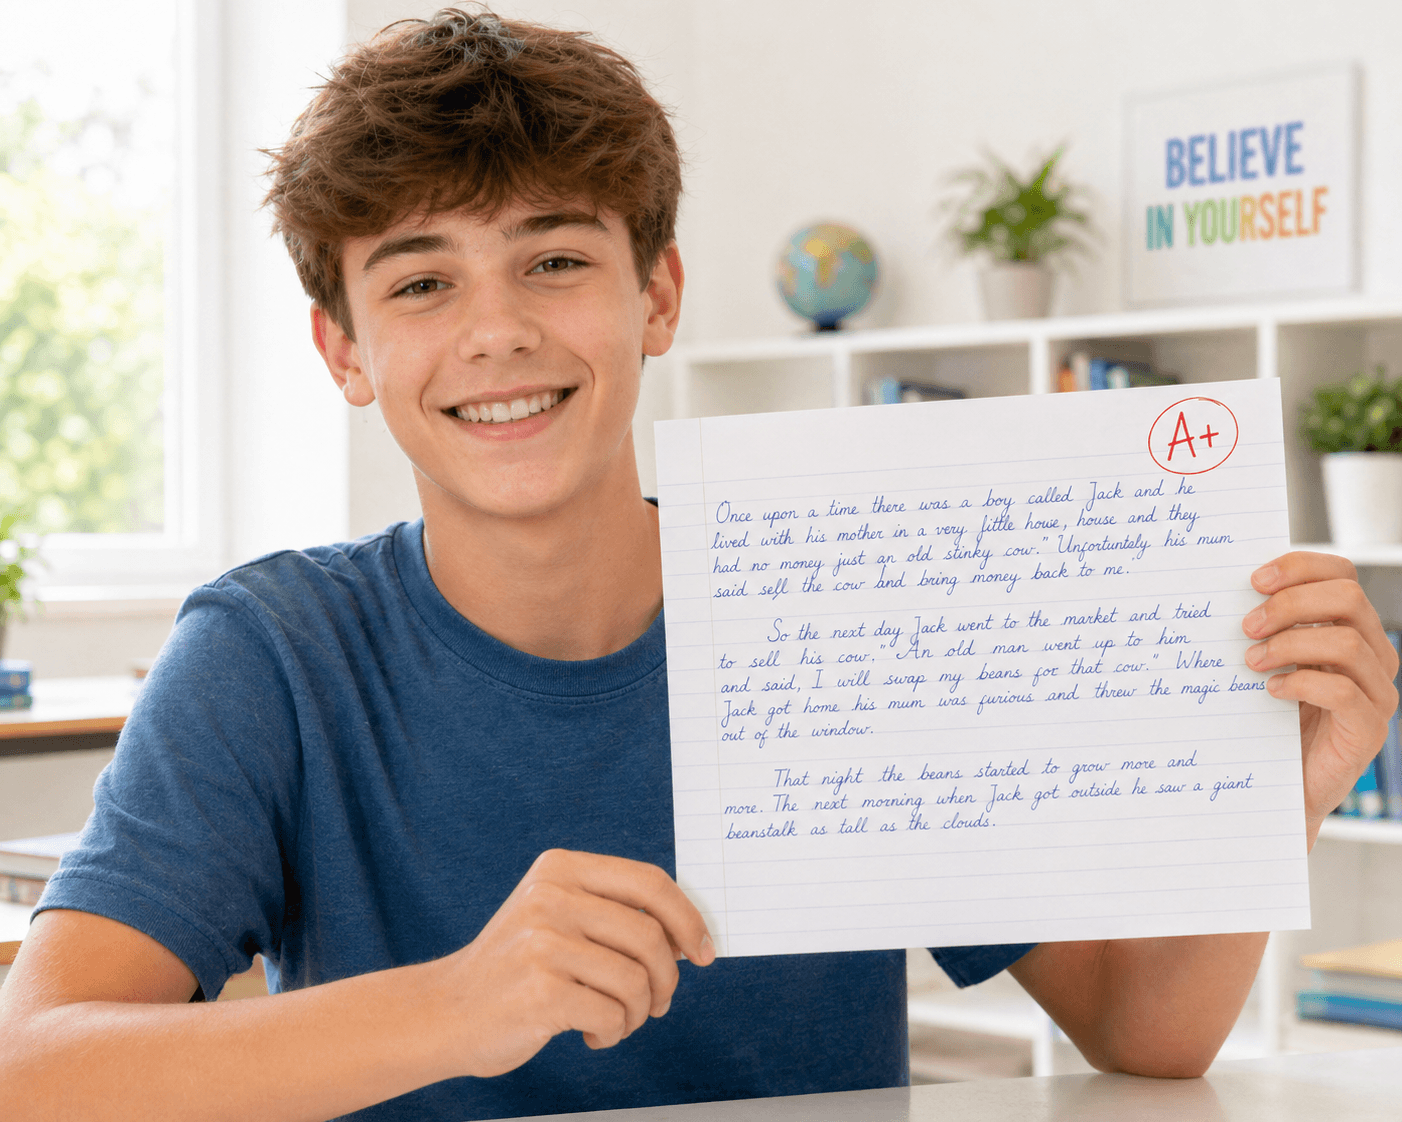 BELIEVE
IN YOURSELF
A+
Once upon a time there was a boy called Jack and he
lived with his mother in a very little house, house and they
had no money just an old stinky cow." Unfortuntely his mum
said sell the cow and bring money back to me."
So the next day Jack went to the market and tried
to sell his cow." An old man went up to him
and said, I will swap my beans for that cow." Where
Jack got home his mum was furious and threw the magic beans
out of the window.
That night the beans started to grow more and
more. The next morning when Jack got outside he saw a giant
beanstalk as tall as the clouds.